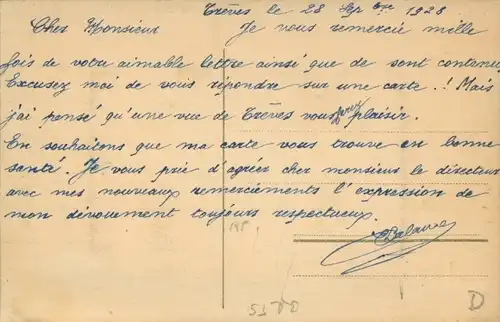 Trèves le 28 Sep bre 1928
Cher Monsieur Je vous remercie mille
fois de votre aimable lettre ainsé que de sont contenu,
Excusez moi de vous répondre sur une carte .! Mais
j'ai pensé qu'une vue de Trèves vous feraz plaisir.
En souhaitons que ma carte vous trouve en bonne
santé. Je vous prie d'agréer cher monsieur le directeur
avec mes nouveaux remerciements l'expression de
mon dévouement toujours respectueux.
D